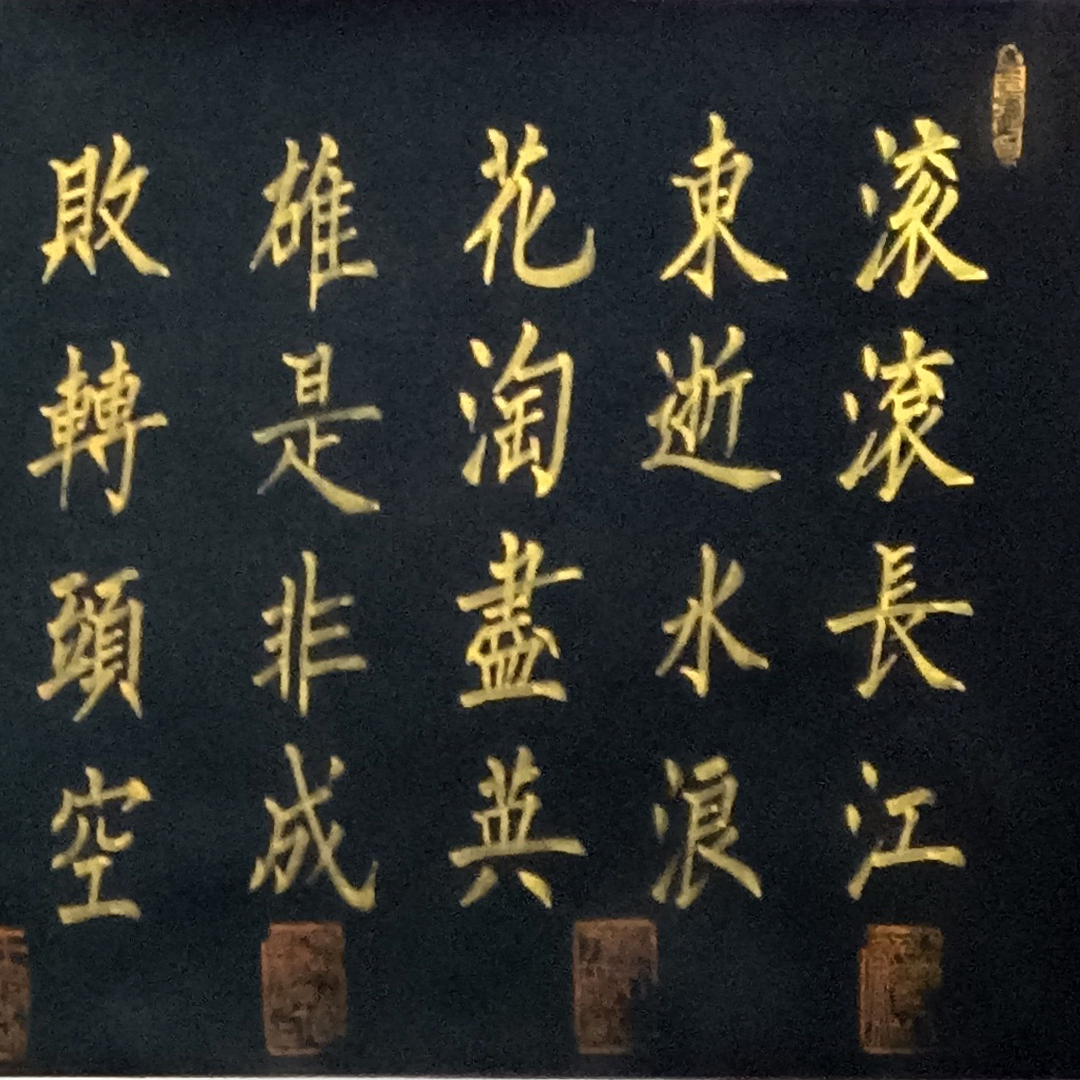 滚滾長江
東逝水浪
花淘盡英
雄是非成
敗轉頭空